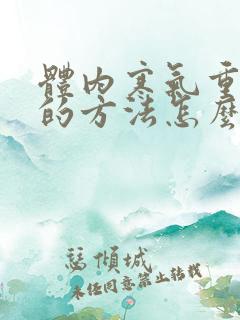 體內寒氣重
的方法怎麼
慧傾城
未經同意禁止轉載